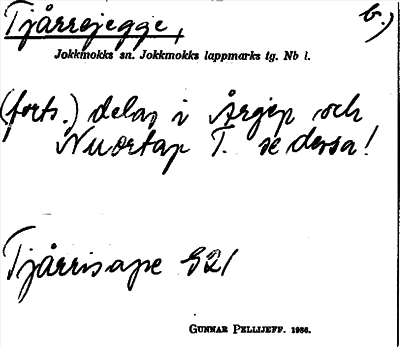 Tjårrejegge, b.)
Jokkmokks sn. Jokkmokks lappmarks tg. Nb l.
(forts.) delas i Årgep och
Nuortap T. se dessa!
Tjårrisape 521
GUNNAR PELLIJEFF. 1956.